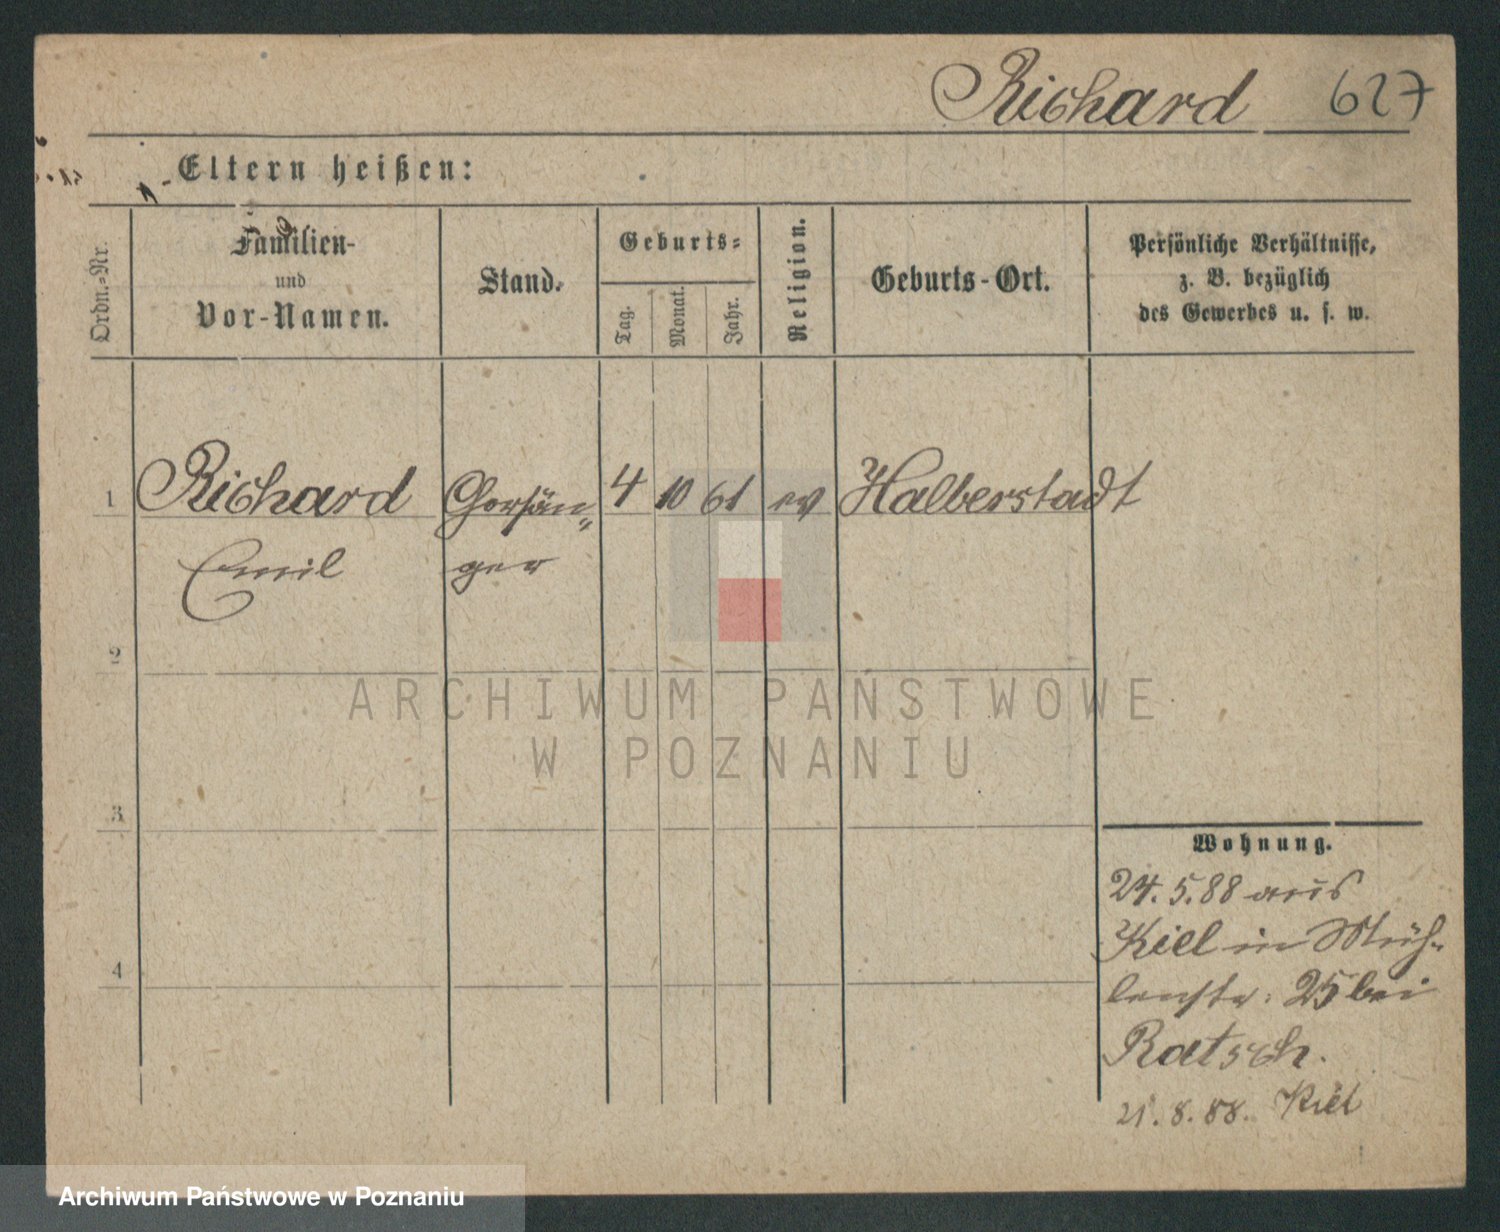 Richard 627
Eltern heißen:
Ordn.-Nr.
Familien-
und
Vor-Namen.
Stand.
Geburts-
Tag.
Monat.
Jahr.
Religion.
Geburts-Ort.
Persönliche Verhältnisse,
z. B. bezüglich
des Gewerbes u. s. w.
1 Richard Chorsän- 4 10 61 ev Halberstadt
Emil ger
2
ARCHIWUM PAŃSTWOWE
W POZNANIU
3
Wohnung.
24.5.88 aus
Kiel in Müh-
lenstr: 25 bei
Ratsch.
4
21.8.88. Kiel
Archiwum Państwowe w Poznaniu